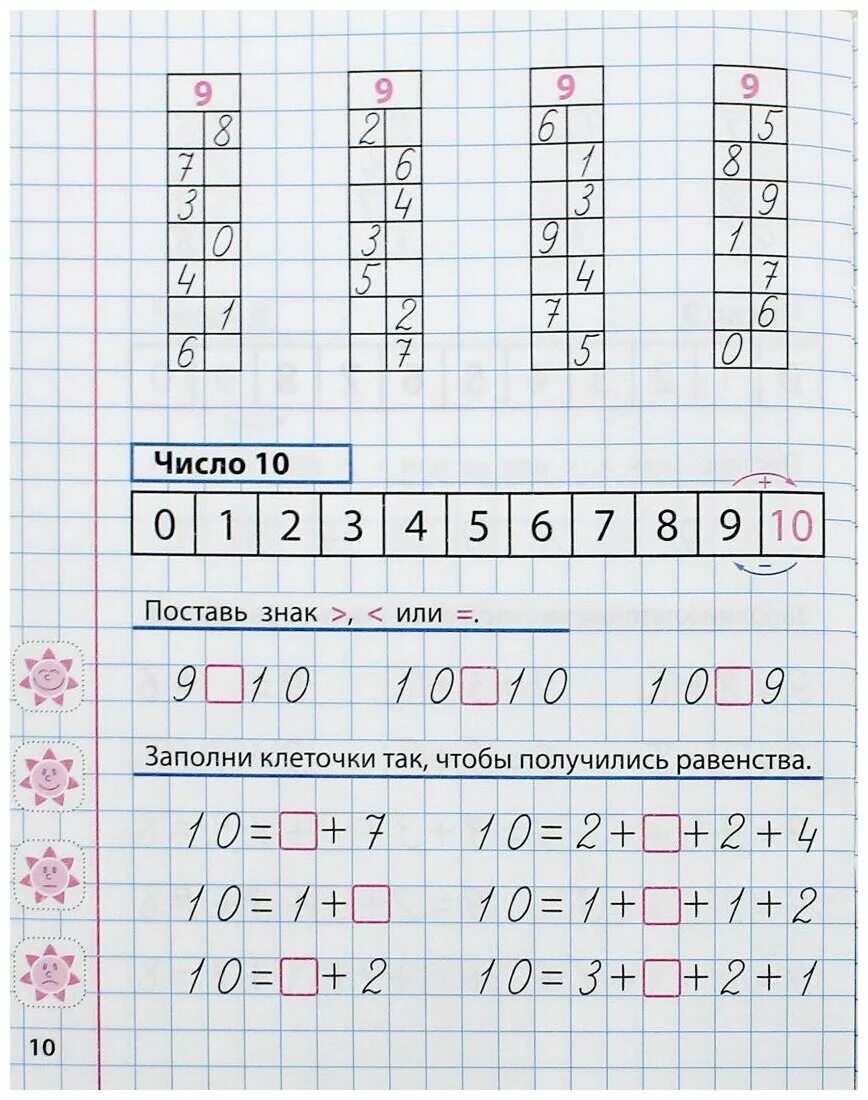 9 9 9 9
8 2 6 5
7 6 1 8
3 4 3 9
0 3 9 1
4 5 4 7
1 2 7 6
6 7 5 0
Число 10
+
0 1 2 3 4 5 6 7 8 9 10
−
Поставь знак >, < или =.
9 □ 10 10 □ 10 10 □ 9
Заполни клеточки так, чтобы получились равенства.
10 = □ + 7 10 = 2 + □ + 2 + 4
10 = 1 + □ 10 = 1 + □ + 1 + 2
10 = □ + 2 10 = 3 + □ + 2 + 1
10